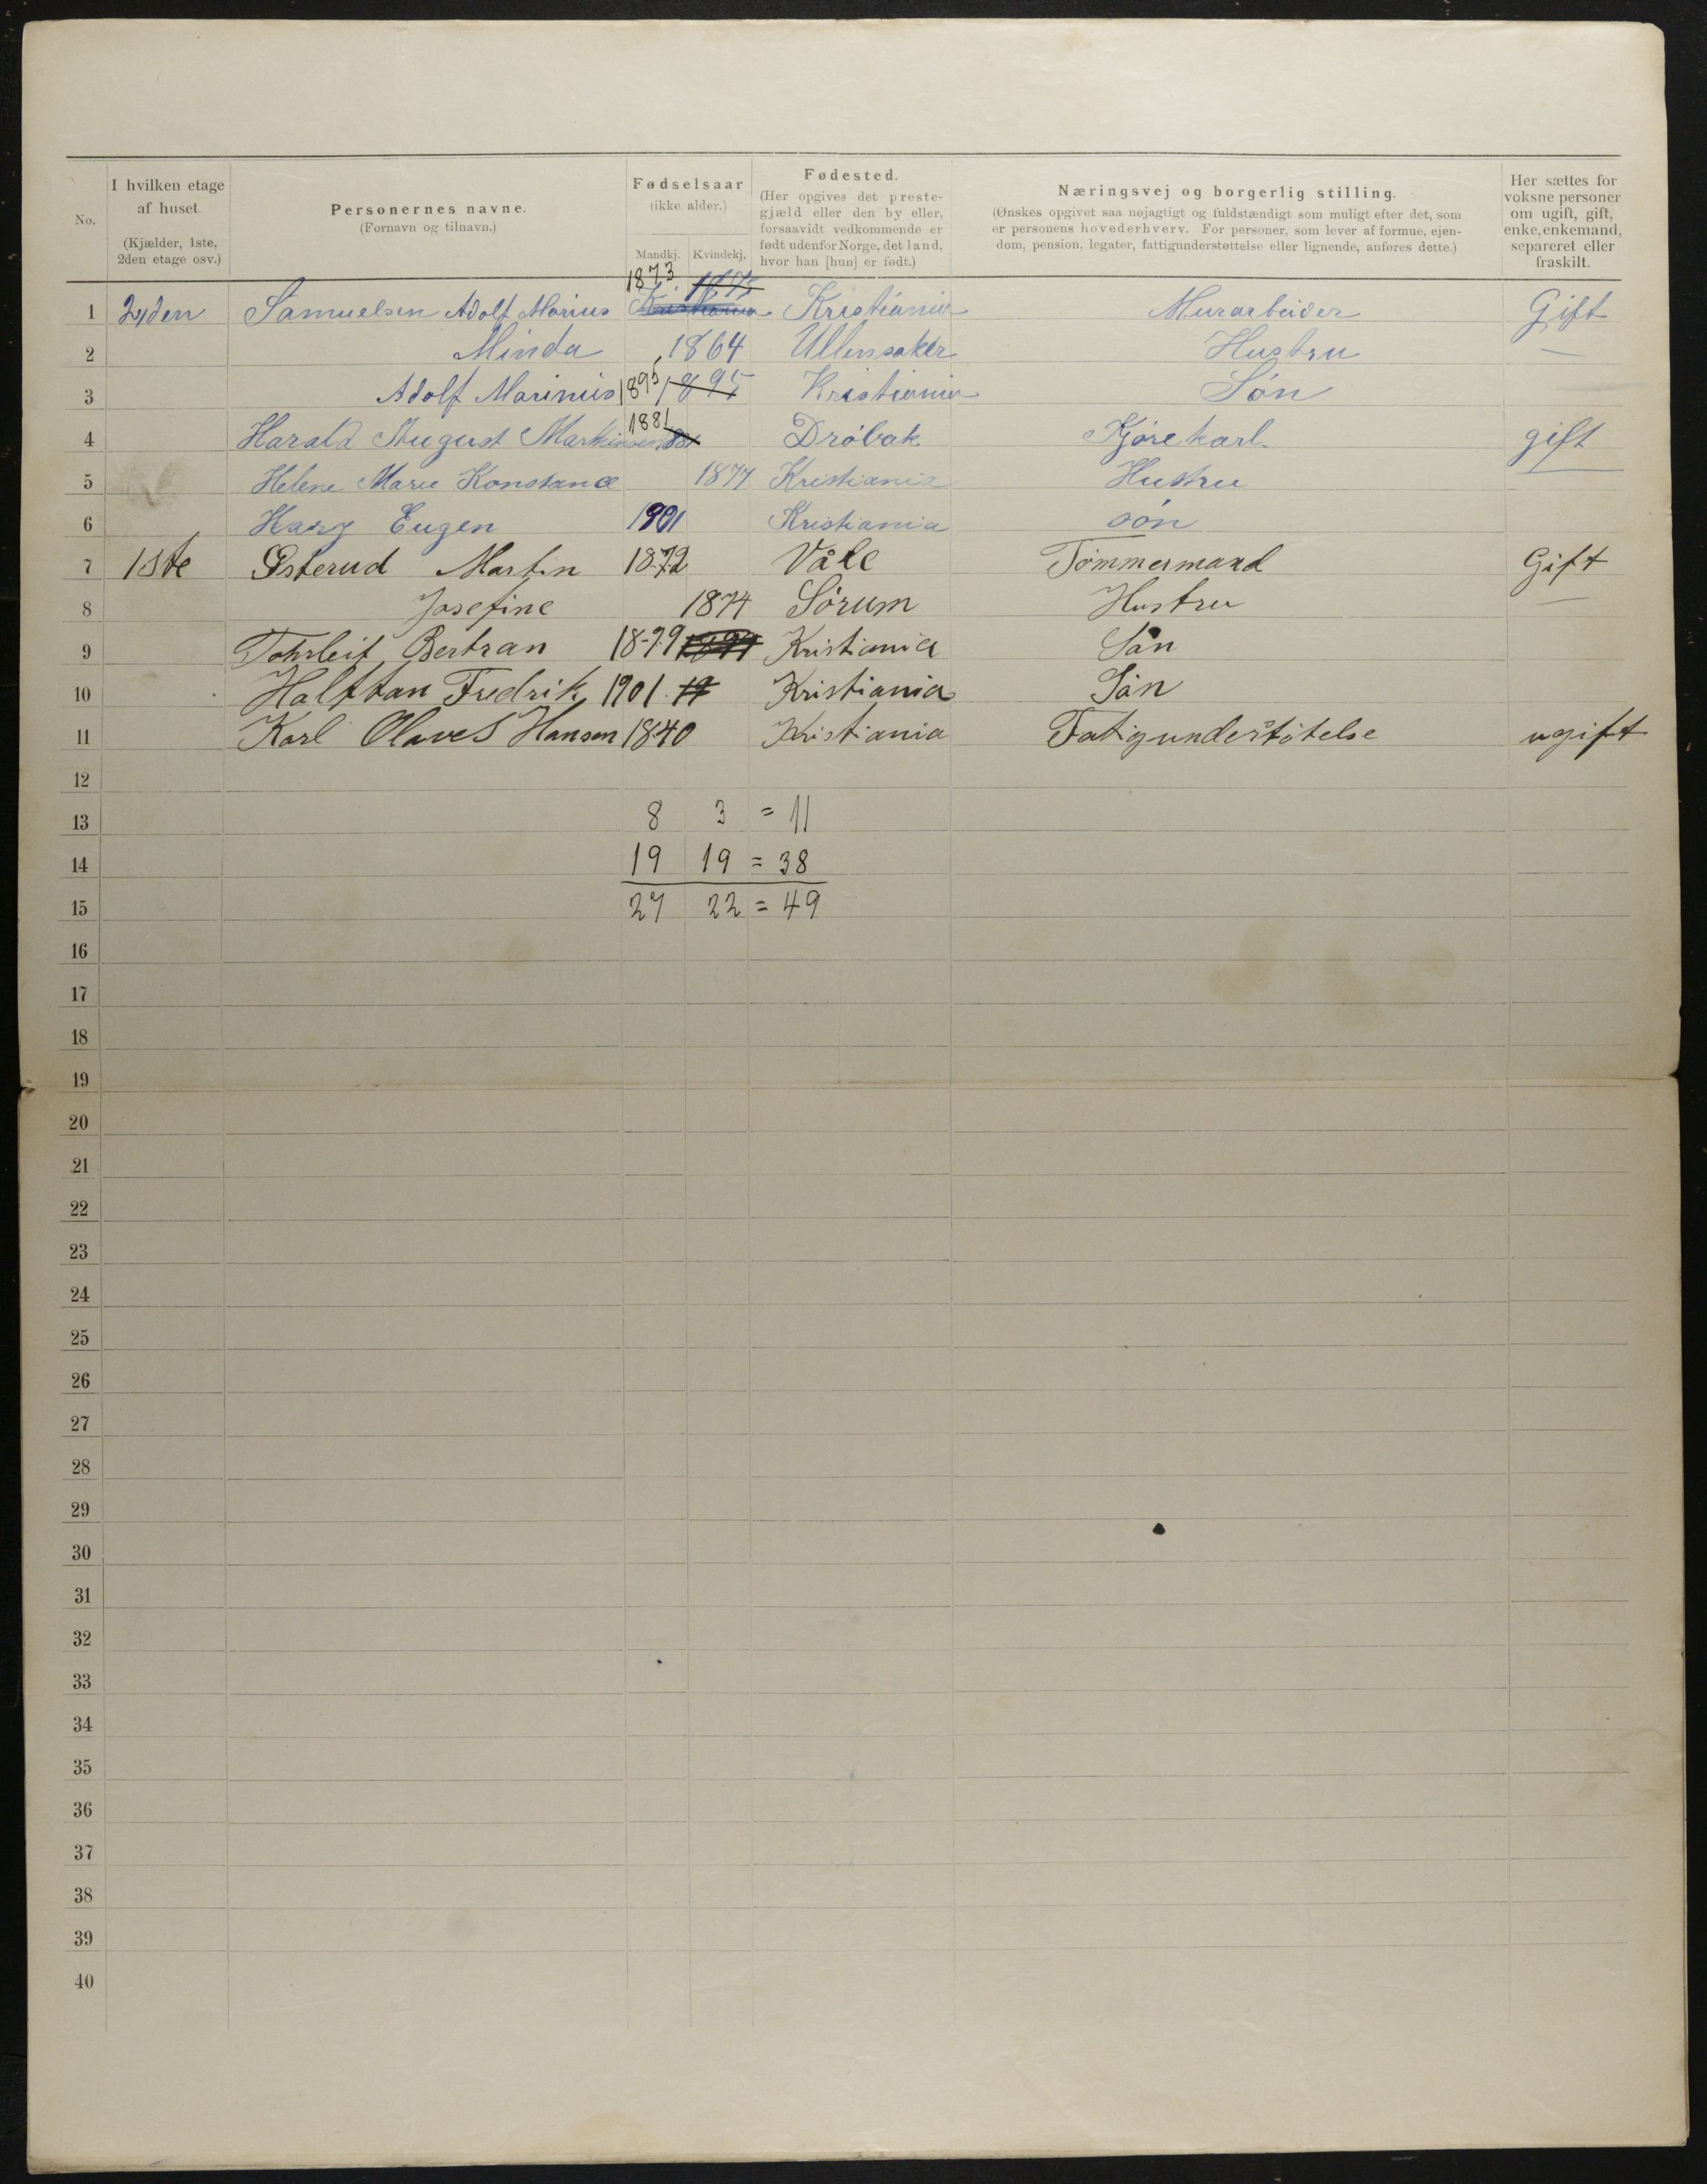 No. I hvilken etage af huset. (Kjælder, 1ste, 2den etage osv.) Personernes navne. (Fornavn og tilnavn.) Fødselsaar (ikke alder.) Mandkj. Kvindekj. Fødested. (Her opgives det prestegjæld eller den by eller, forsaavidt vedkommende er født udenfor Norge, det land, hvor han [hun] er født.) Næringsvej og borgerlig stilling. (Ønskes opgivet saa nøjagtigt og fuldstændigt som muligt efter det, som er personens hovederhverv. For personer, som lever af formue, ejendom, pension, legater, fattigunderstøttelse eller lignende, anføres dette.) Her sættes for voksne personer om ugift, gift, enke, enkemand, separeret eller fraskilt.
1 2den Samuelsen Adolf Marius 1873 Kristiania Murarbeider Gift
2 Minda 1864 Ullensaker Hustru —
3 Adolf Marinius 1895 1895 Kristiania Søn
4 Harald August Markussen 1881 Drøbak Kjørekarl. gift
5 Helene Marie Konstance 1877 Kristiania Hustru —
6 Harry Eugen 1901 Kristiania søn
7 1ste Østerud Martin 1872 Våle Tømmermand Gift
8 Josefine 1874 Sørum Hustru —
9 Tohrleif Bertran 1899 Kristiania Søn
10 Halftan Fredrik 1901 19 Kristiania Søn
11 Karl Olaves Hansen 1840 Kristiania Fatigunderstøtelse ugift
12
13 8 3 = 11
14 19 19 = 38
15 27 22 = 49
16
17
18
19
20
21
22
23
24
25
26
27
28
29
30
31
32
33
34
35
36
37
38
39
40